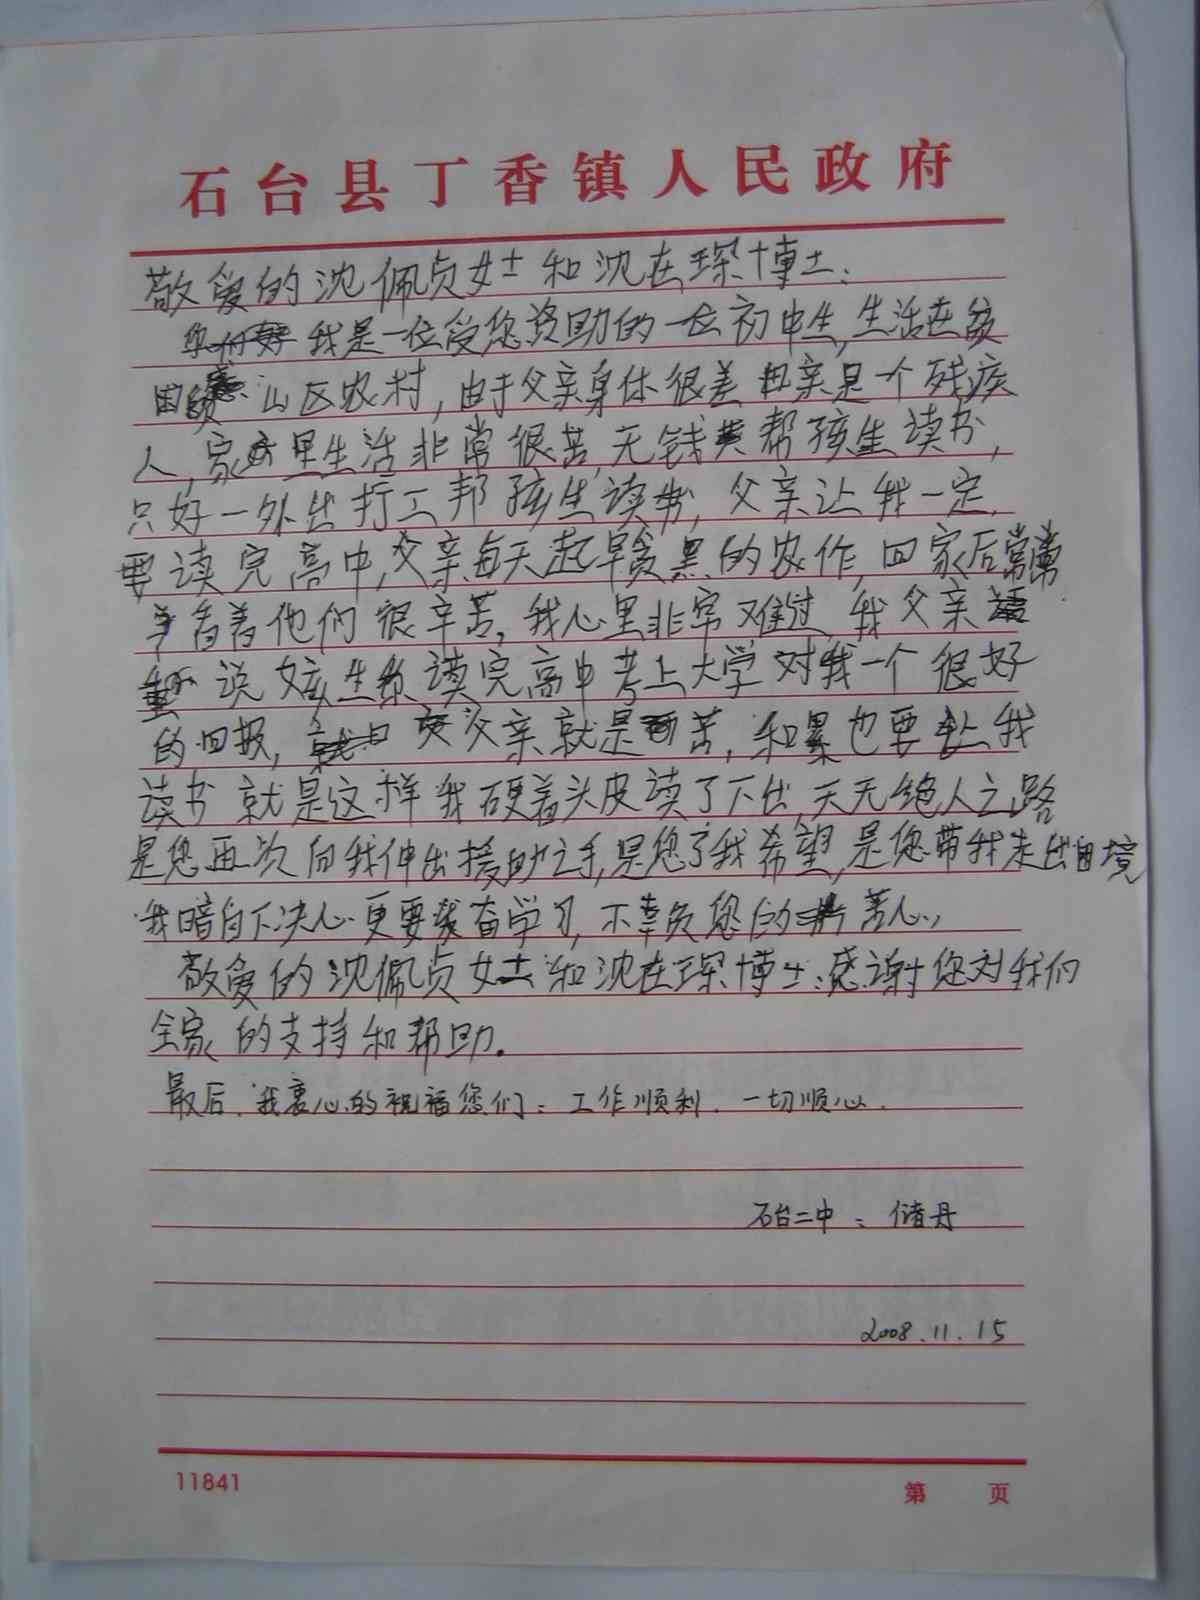 石台县丁香镇人民政府
敬爱的沈佩贞女士和沈在琛博士:
您们好 我是一位受您资助的一位初中生,生活在贫
困 山区农村,由于父亲身体很差 母亲是一个残疾
人,家 里生活非常很苦,无钱 帮孩生读书,
只好一外出打工邦孩生读书,父亲让我一定
要读完高中,父亲每天起早贪黑的农作,回家后常常
看着他们很辛苦,我心里非常难过 我父亲
说女孩生你读完高中考上大学对我一个很好
的回报, 父亲就是 苦,和累也要让我
读书 就是这样我硬着头皮读了下出,天无绝人之路
是您再次向我伸出援助之手,是您了我希望,是您带我走出困境
我暗自下决心 更要 奋学习,不辜负您的 苦心,
敬爱的沈佩贞女士和沈在琛博士:感谢您对我们
全家的支持和帮助.
最后.我衷心的祝福您们:工作顺利.一切顺心.
石台二中:储丹
2008.11.15
11841
第 页